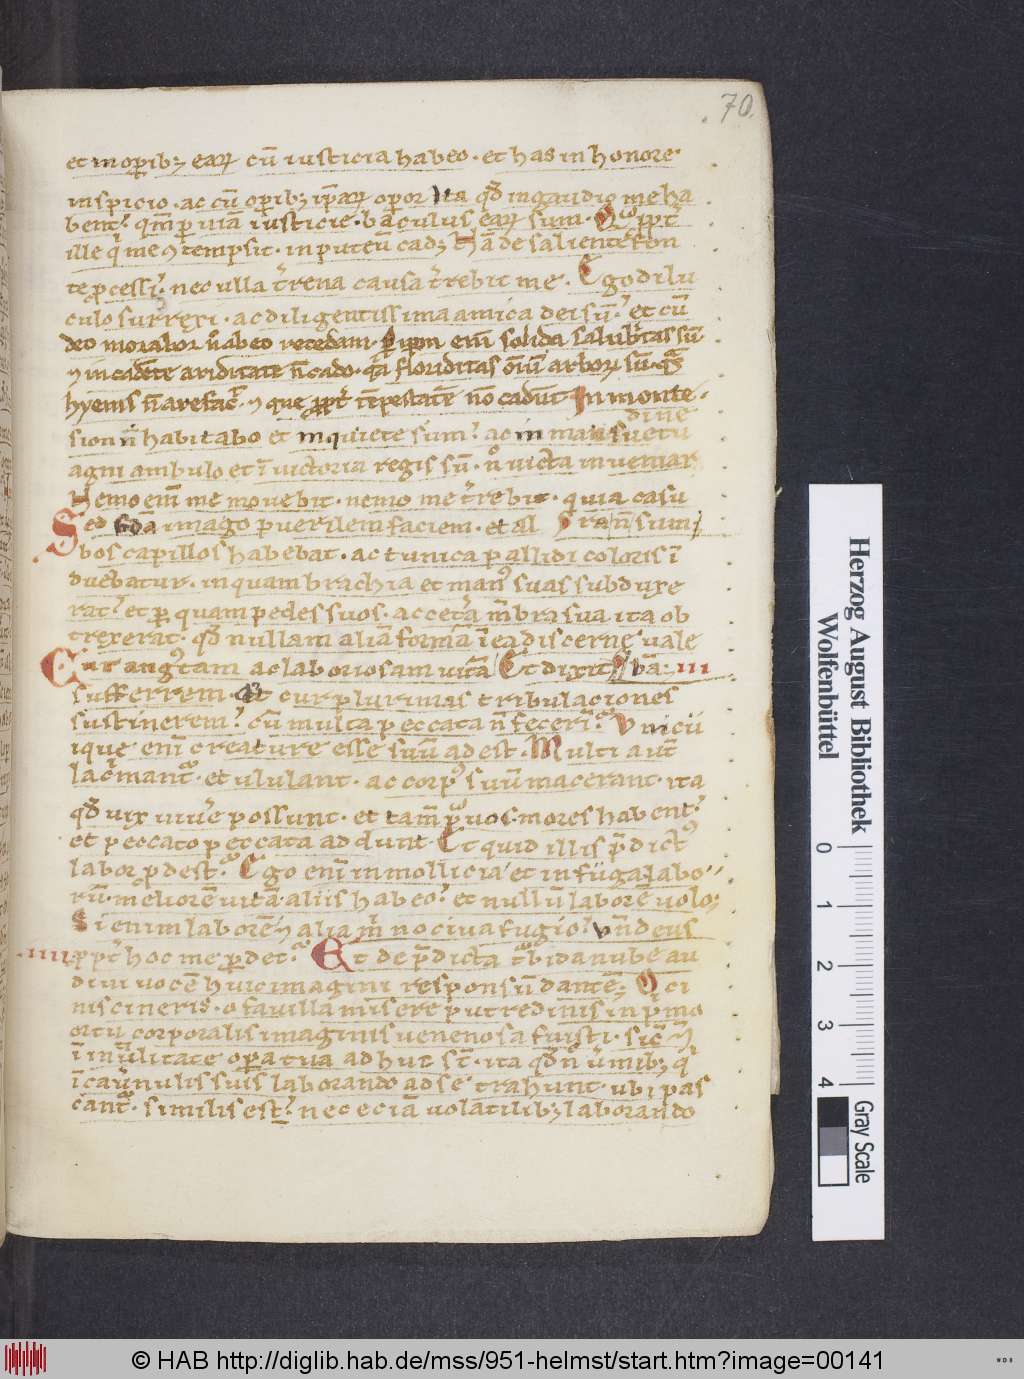 70.
et in oꝑibꝫ earꝝ cū iusticia habeo · et has in honore ·
inspicio · ac cū oꝑibꝫ ip̄arꝝ oꝑor Ita qđ in gaudio me ha
bent · qm̄ ꝑ uiā iusticie · baculus earꝝ sum ·
ille q̇ me ꝯtempsit · in puteū cadꝫ de saliente fon
te ꝓcessi · nec ulla t̓rena causa t̓rebit me · Ego dilu
culo surrexi · ac diligentissima amica dei sū · et cū
deo morabor nͦ ab eo recedam · enī solida salubritas sū
⁊ in cadēte ariditate n̄ cado · qͣ floriditas oīū arborꝝ sū ·
hyemis n̄ arefac̄ · ⁊ que tēpestatē nō cadūt In monte ·
dine
sion n̄ habitabo et in quiete sum · ac in mansuetu
agni ambulo et ī victoria regis sū · nͦ victa inveniar
Nemo enī me movebit · nemo me t̓rebit · quia casu
Sed q̄dā imago puerilem faciem · et al
bos capillos habebat · ac tunica pallidi coloris ī
duebatur · in quam brachia et man⁹ suas subduxe
rat · et ꝑ quam pedes suos · ac cet̓a mēbra sua ita ob
texerat · qđ nullam aliā formā ī ea discerne̓ vale
Cur ang⁹tam ac laboriosam vitā Et dixit bā: III
sufferrem · Et cur plurimas tribulaciones
sustinerem · cū multa peccata n̄ fecerī Unicu
ique enī creature esse suū adest · Multi aut̄
lac̓mant̉ · et ululant · ac corp⁹ suū macerant · ita
qđ vix viue̓ possunt · et tam̄ mores habent ·
et peccato peccata addunt · Et quid illis p̄dict⁹
labor ꝓdest · Ego enī in mollicia et in fuga labo
rū · meliorē vitā aliis habeo · et nullū laborē volo ·
Si enim laborē ⁊ alia nociva fugio · vn̄ deus
IIII ppt̓ hoc me ꝑdet · Et de p̄dicta t̉bida nube au
divi vocē huic imagini responsū dantē · O ci
nis cineris · o favilla misere putredinis in p̓mo
ortu corporalis imaginis venenosa fuisti ·
ī inutilitate opa tua adhuc st̄ · ita qđ nͦ v̓mibꝫ q̇
ī cav̓nulis suis laborando ad se trahunt · ubi pas
cant̉ · similis es · nec eciā volatilibꝫ laborando
Herzog August Bibliothek
Wolfenbüttel
0 1 2 3 4
Gray Scale
© HAB http://diglib.hab.de/mss/951-helmst/start.htm?image=00141
WDB